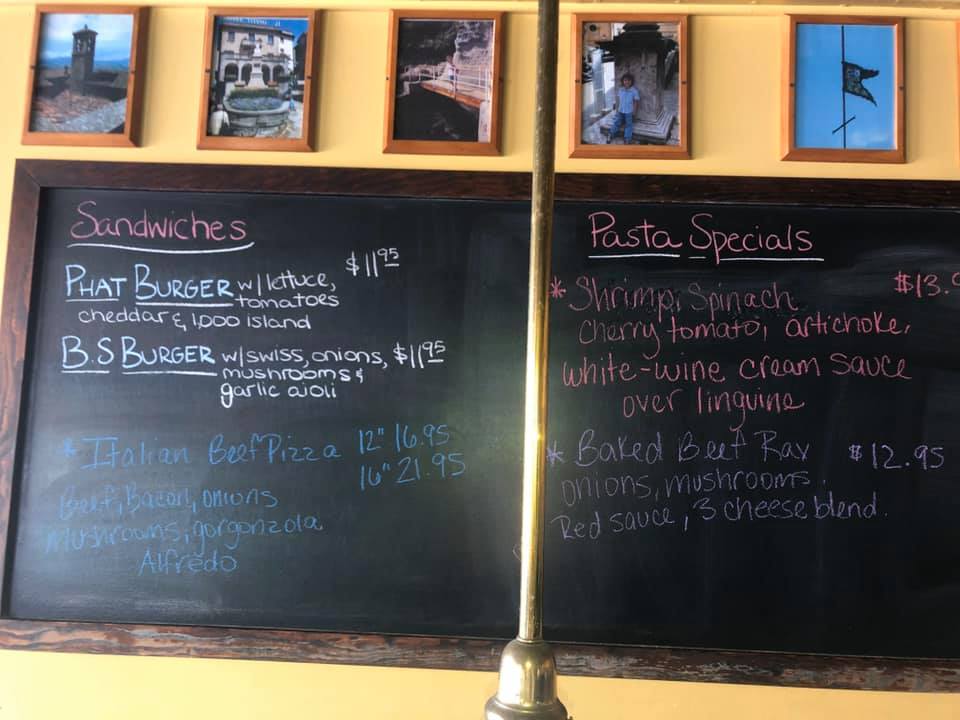 Sandwiches
PHAT BURGER w/lettuce, $11.95
tomatoes
cheddar & 1,000 island
B.S BURGER w/swiss, onions, $11.95
mushrooms &
garlic aioli
* Italian Beef Pizza 12" 16.95
16" 21.95
Beef, Bacon, onions
mushrooms, gorgonzola
Alfredo
Pasta Specials
* Shrimp, Spinach $13.9
cherry tomato, artichoke,
white-wine cream sauce
over linguine
* Baked Beef Rav $12.95
onions, mushrooms.
Red sauce, 3 cheese blend.